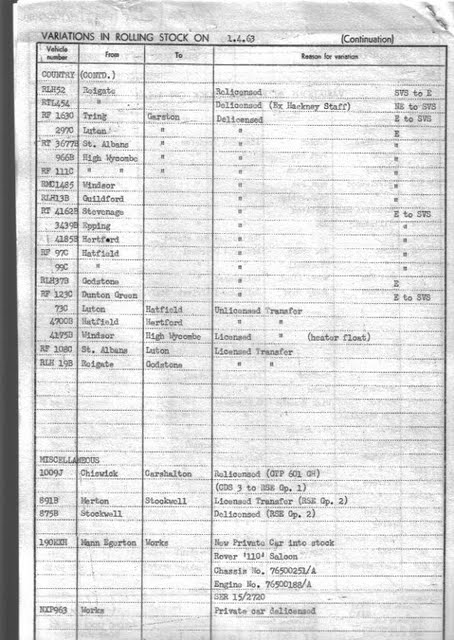 VARIATIONS IN ROLLING STOCK ON 1.4.63 (Continuation)
Vehicle number From To Reason for variation
COUNTRY (CONTD.)
RLH52 Reigate Relicensed SVS to E
RTL454 " Delicensed (Ex Hackney Staff) NE to SVS
RF 163C Tring Garston Delicensed E to SVS
297C Luton " " E
RT 3677B St. Albans " " "
966B High Wycombe " " "
RF 111C " " " " "
RMC1485 Windsor " "
RLH13B Guildford " "
RT 4162B Stevenage " E to SVS
3439B Epping " "
4185B Hertford " "
RF 97C Hatfield " "
99C " " "
RLH37B Godstone " E
RF 123C Dunton Green " E to SVS
73C Luton Hatfield Unlicensed Transfer
4700B Hatfield Hertford " "
4195B Windsor High Wycombe Licensed " (heater float)
RF 108C St. Albans Luton Licensed Transfer
RLH 19B Reigate Godstone " "
MISCELLANEOUS
1009J Chiswick Carshalton Relicensed (GTP 601 GH)
(CDS 3 to RSE Gp. 1)
891B Merton Stockwell Licensed Transfer (RSE Gp. 2)
875B Stockwell Delicensed (RSE Gp. 2)
190EXR Mann Egerton Works New Private Car into stock
Rover '110' Saloon
Chassis No. 76500251/A
Engine No. 76500188/A
SER 15/2720
NXP963 Works Private car delicensed